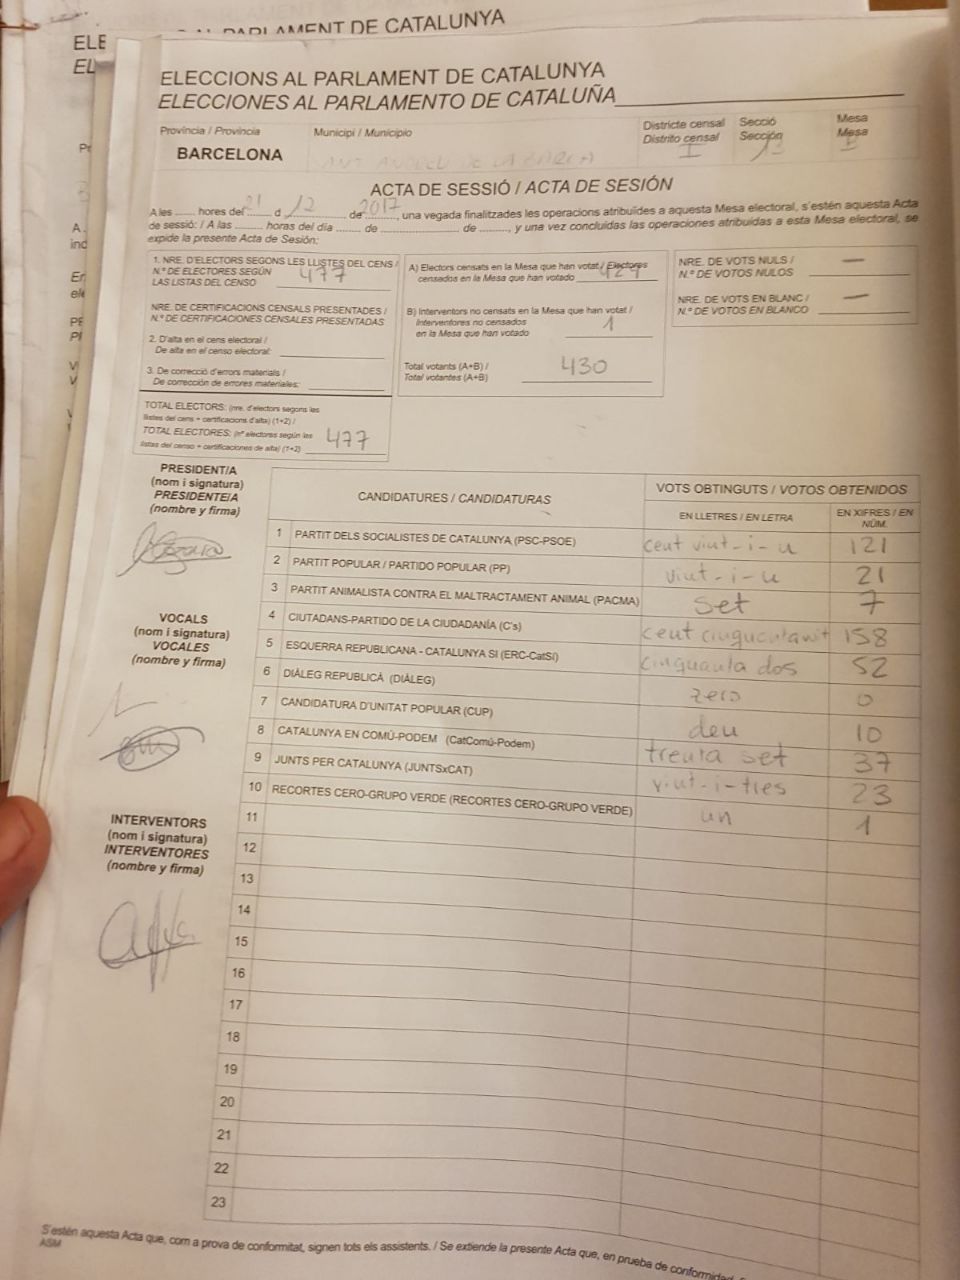 PARLAMENT DE CATALUNYA
ELE
EL
ELECCIONS AL PARLAMENT DE CATALUNYA
ELECCIONES AL PARLAMENTO DE CATALUÑA
Província / Provincia
Municipi / Municipio
Districte censal
Distrito censal
Secció
Sección
Mesa
Mesa
BARCELONA
SANT ANDREU DE LA BARCA
I
13
B
ACTA DE SESSIÓ / ACTA DE SESIÓN
A les ...... hores del 21 d 12 de 2017, una vegada finalitzades les operacions atribuïdes a aquesta Mesa electoral, s'estén aquesta Acta
de sessió: / A las ........ horas del día ....... de ...................... de ........, y una vez concluidas las operaciones atribuidas a esta Mesa electoral, se
expide la presente Acta de Sesión:
1. NRE. D'ELECTORS SEGONS LES LLISTES DEL CENS /
N.º DE ELECTORES SEGÚN
LAS LISTAS DEL CENSO
477
NRE. DE CERTIFICACIONS CENSALS PRESENTADES /
N.º DE CERTIFICACIONES CENSALES PRESENTADAS
2. D'alta en el cens electoral /
De alta en el censo electoral:
3. De correcció d'errors materials /
De corrección de errores materiales:
TOTAL ELECTORS: (nre. d'electors segons les
llistes del cens + certificacions d'alta) (1+2) /
TOTAL ELECTORES: (nº electores según las
listas del censo + certificaciones de alta) (1+2)
477
A) Electors censats en la Mesa que han votat / Electores
censados en la Mesa que han votado
B) Interventors no censats en la Mesa que han votat /
Interventores no censados
en la Mesa que han votado
1
Total votants (A+B) /
Total votantes (A+B)
430
NRE. DE VOTS NULS /
N.º DE VOTOS NULOS
—
NRE. DE VOTS EN BLANC /
N.º DE VOTOS EN BLANCO
—
PRESIDENT/A
(nom i signatura)
PRESIDENTE/A
(nombre y firma)
VOCALS
(nom i signatura)
VOCALES
(nombre y firma)
INTERVENTORS
(nom i signatura)
INTERVENTORES
(nombre y firma)
CANDIDATURES / CANDIDATURAS
VOTS OBTINGUTS / VOTOS OBTENIDOS
EN LLETRES / EN LETRA
EN XIFRES / EN NÚM.
1 PARTIT DELS SOCIALISTES DE CATALUNYA (PSC-PSOE) cent vint-i-u 121
2 PARTIT POPULAR / PARTIDO POPULAR (PP) vint-i-u 21
3 PARTIT ANIMALISTA CONTRA EL MALTRACTAMENT ANIMAL (PACMA) set 7
4 CIUTADANS-PARTIDO DE LA CIUDADANÍA (C's) cent cinquantavuit 158
5 ESQUERRA REPUBLICANA - CATALUNYA SÍ (ERC-CatSí) cinquanta dos 52
6 DIÀLEG REPUBLICÀ (DIÀLEG) zero 0
7 CANDIDATURA D'UNITAT POPULAR (CUP) deu 10
8 CATALUNYA EN COMÚ-PODEM (CatComú-Podem) trenta set 37
9 JUNTS PER CATALUNYA (JUNTSxCAT) vint-i-tres 23
10 RECORTES CERO-GRUPO VERDE (RECORTES CERO-GRUPO VERDE) un 1
11
12
13
14
15
16
17
18
19
20
21
22
23
S'estén aquesta Acta que, com a prova de conformitat, signen tots els assistents. / Se extiende la presente Acta que, en prueba de conformidad,
ASM